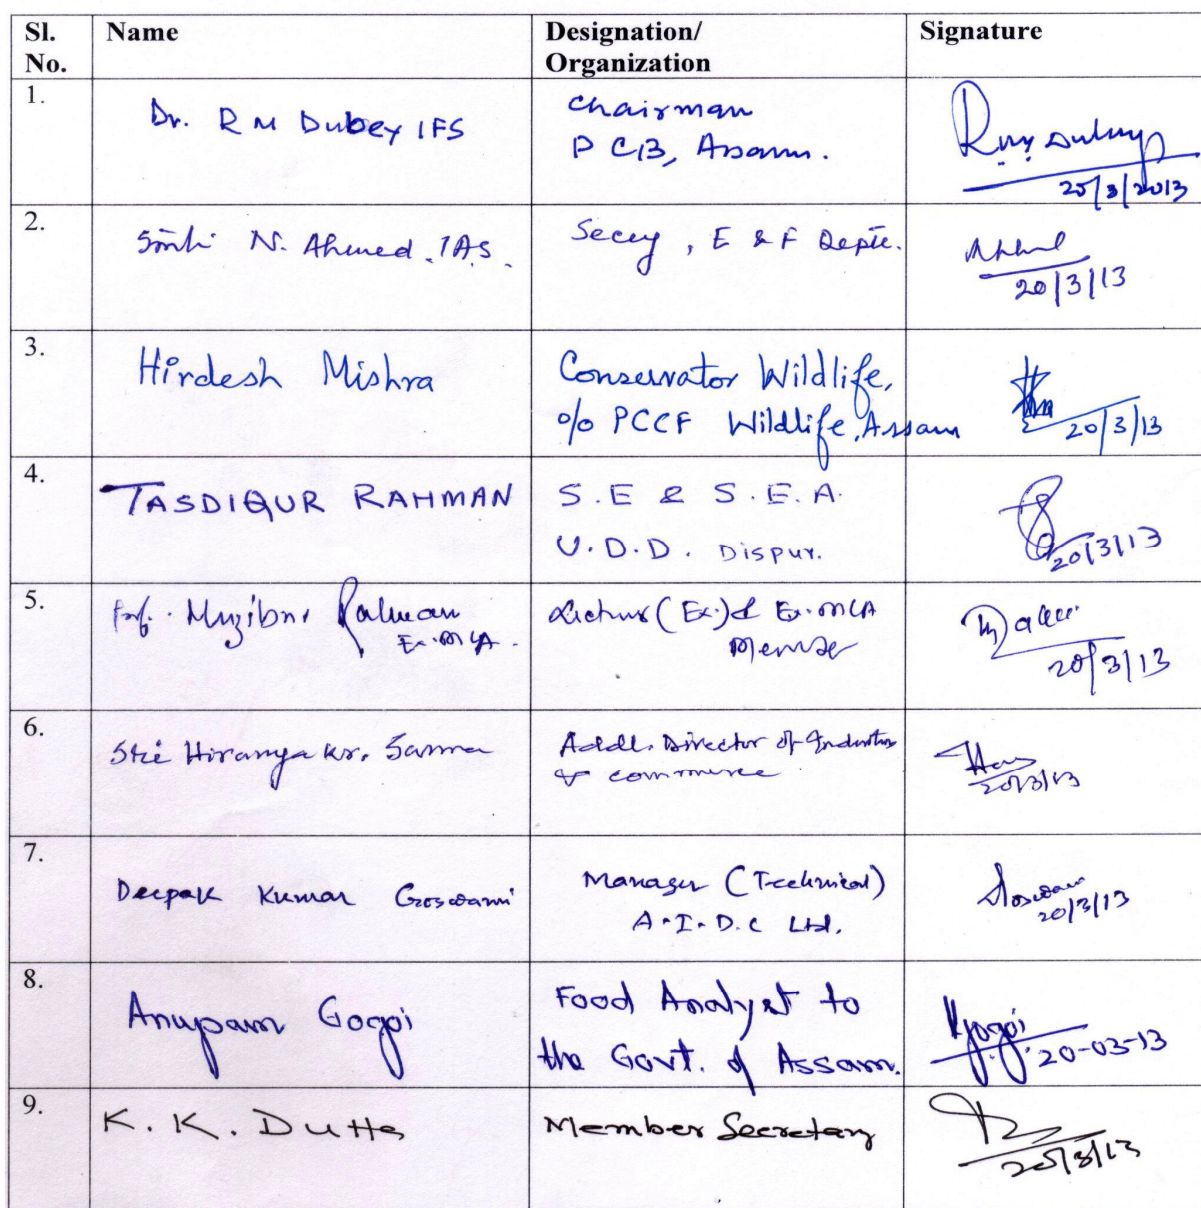 Sl. No. Name Designation/ Organization Signature
1. Dr. R M Dubey IFS Chairman
P CB, Assam.
20/3/2013
2. Smti N. Ahmed. IAS. Secy, E & F Deptt.
20/3/13
3. Hirdesh Mishra Conservator Wildlife,
o/o PCCF Wildlife, Assam
20/3/13
4. TASDIQUR RAHMAN S.E & S.E.A.
U.D.D. Dispur.
20/3/13
5. Prof. Muzibur Rahman Lecturer (Ex.) & Ex. MLA
Ex. MLA. Member
20/3/13
6. Shri Hiranya Kr. Sarma Addl. Director of Industries
& commerce
20/3/13
7. Deepak Kumar Goswami Manager (Technical)
A.I.D.C Ltd.
Goswami
20/3/13
8. Anupam Gogoi Food Analyst to
the Govt. of Assam.
Gogoi
20-03-13
9. K. K. Dutta Member Secretary
20/3/13